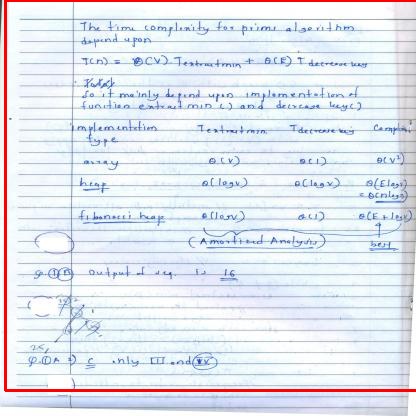 The time complexity for prims algorithm
depend upon
T(n) = θ(V) Textractmin + θ(E) Tdecrease key
so it mainly depend upon implementation of
function extract min() and decrease key()
implementation Textractmin Tdecrease key Complexi
type
array θ(V) θ(1) θ(V²)
heap θ(logv) θ(logv) θ(Elogv)
= θ(nlogn)
fibonacci heap θ(logv) θ(1) θ(E + logv)
(Amortized Analysis) best
Q.① B output of seq. is 16
Q.① A c only III and IV